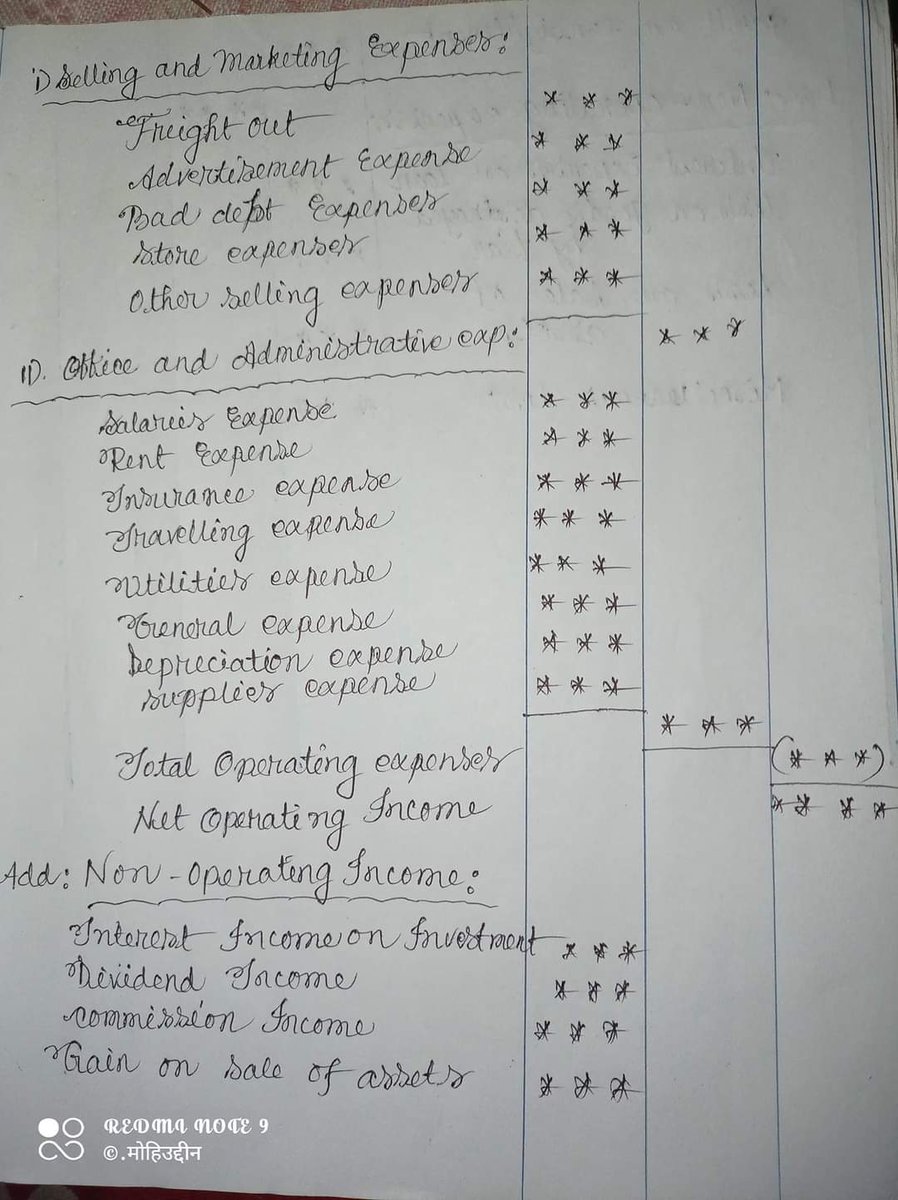 i) Selling and Marketing Expenses:
Freight out * * *
Advertisement Expense * * *
Bad debt Expenses * * *
Store expenses * * *
Other selling expenses * * *
* * *
II). Office and Administrative exp:
Salaries Expense * * *
Rent Expense * * *
Insurance expense * * *
Travelling expense * * *
Utilities expense * * *
General expense * * *
Depreciation expense * * *
Supplies expense * * *
* * *
Total Operating expenses (* * *)
Net Operating Income * * * *
Add: Non-Operating Income:
Interest Income on Investment * * *
Dividend Income * * *
Commission Income * * *
Gain on sale of assets * * *
REDMA NOTE 9
©.मोहिउद्दीन